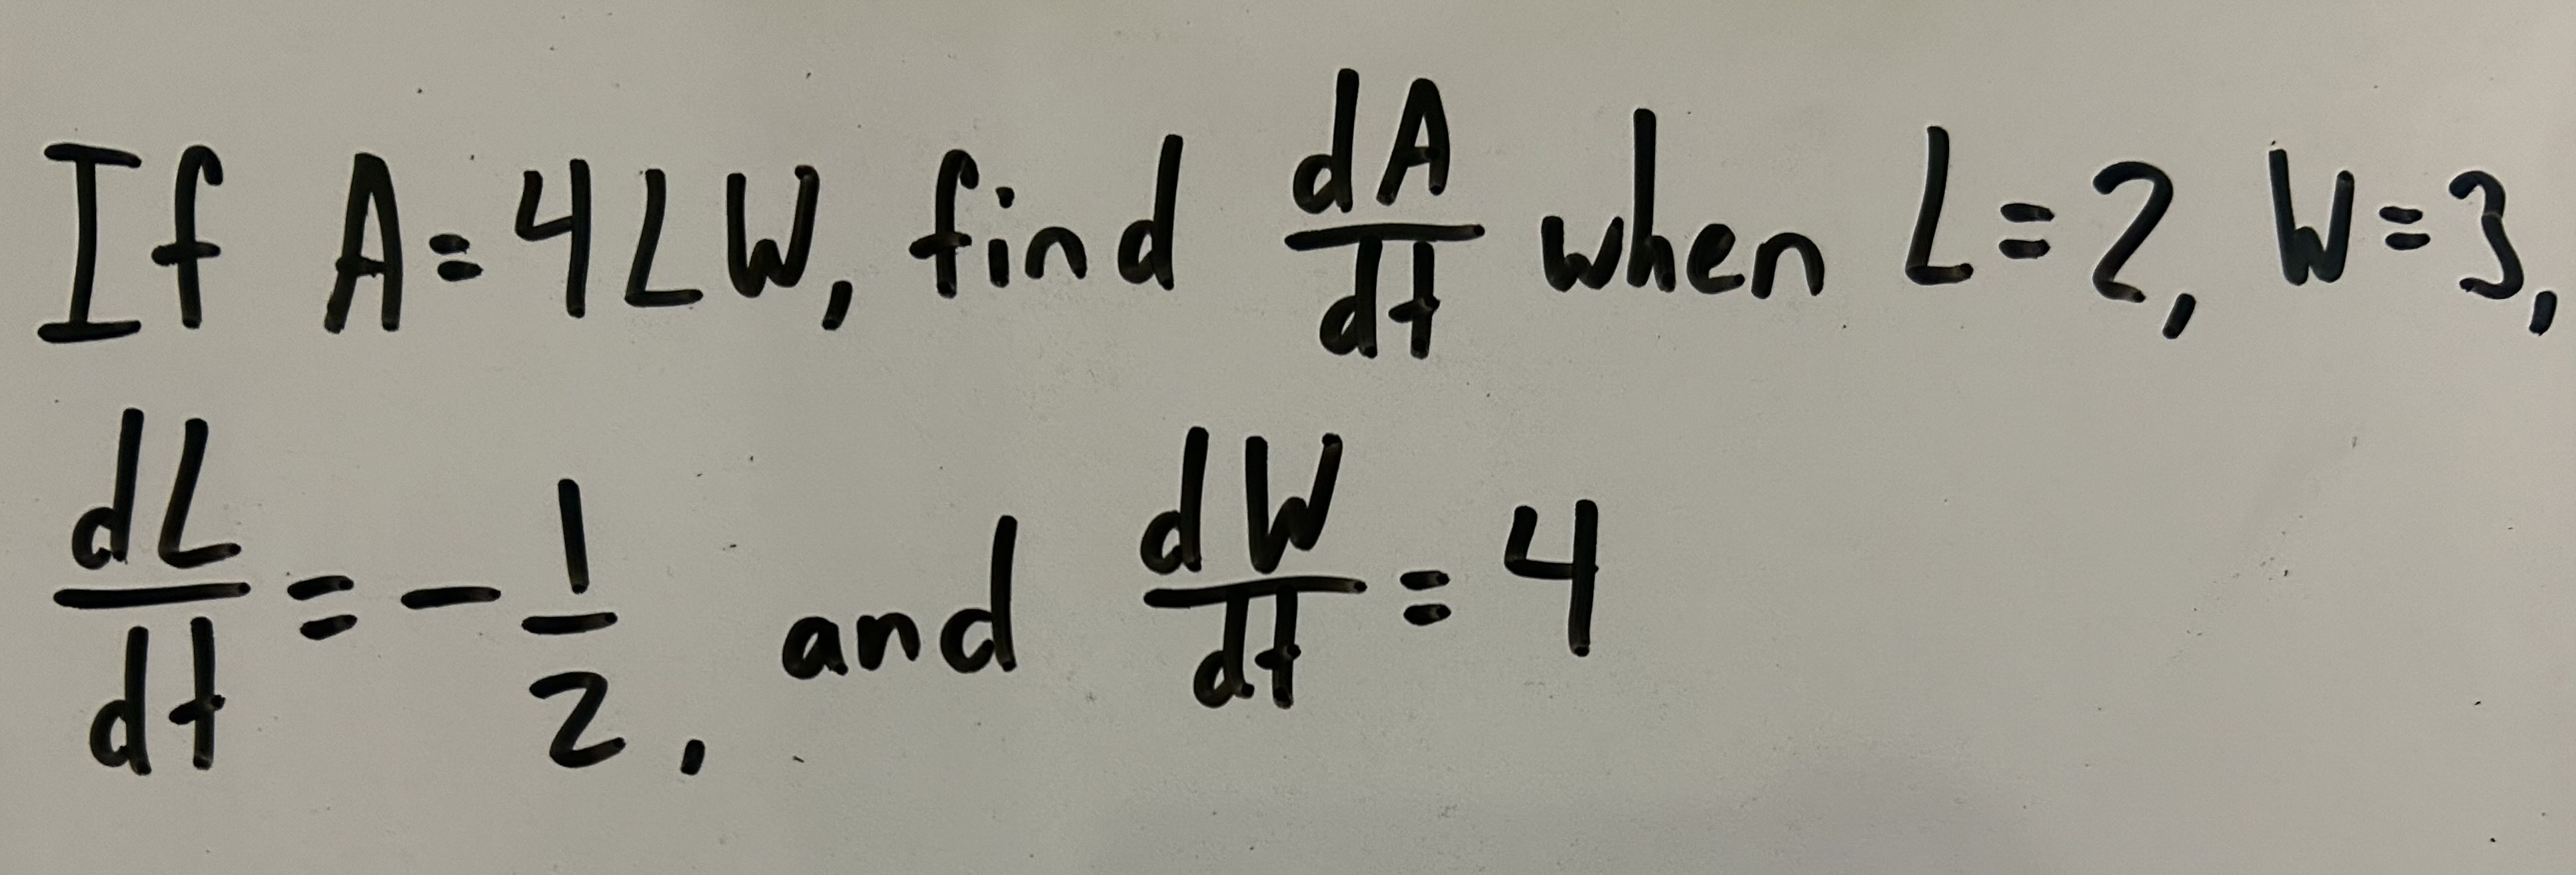 If A=4LW, find dA/dt when L=2, W=3,
dL/dt = -1/2, and dW/dt = 4